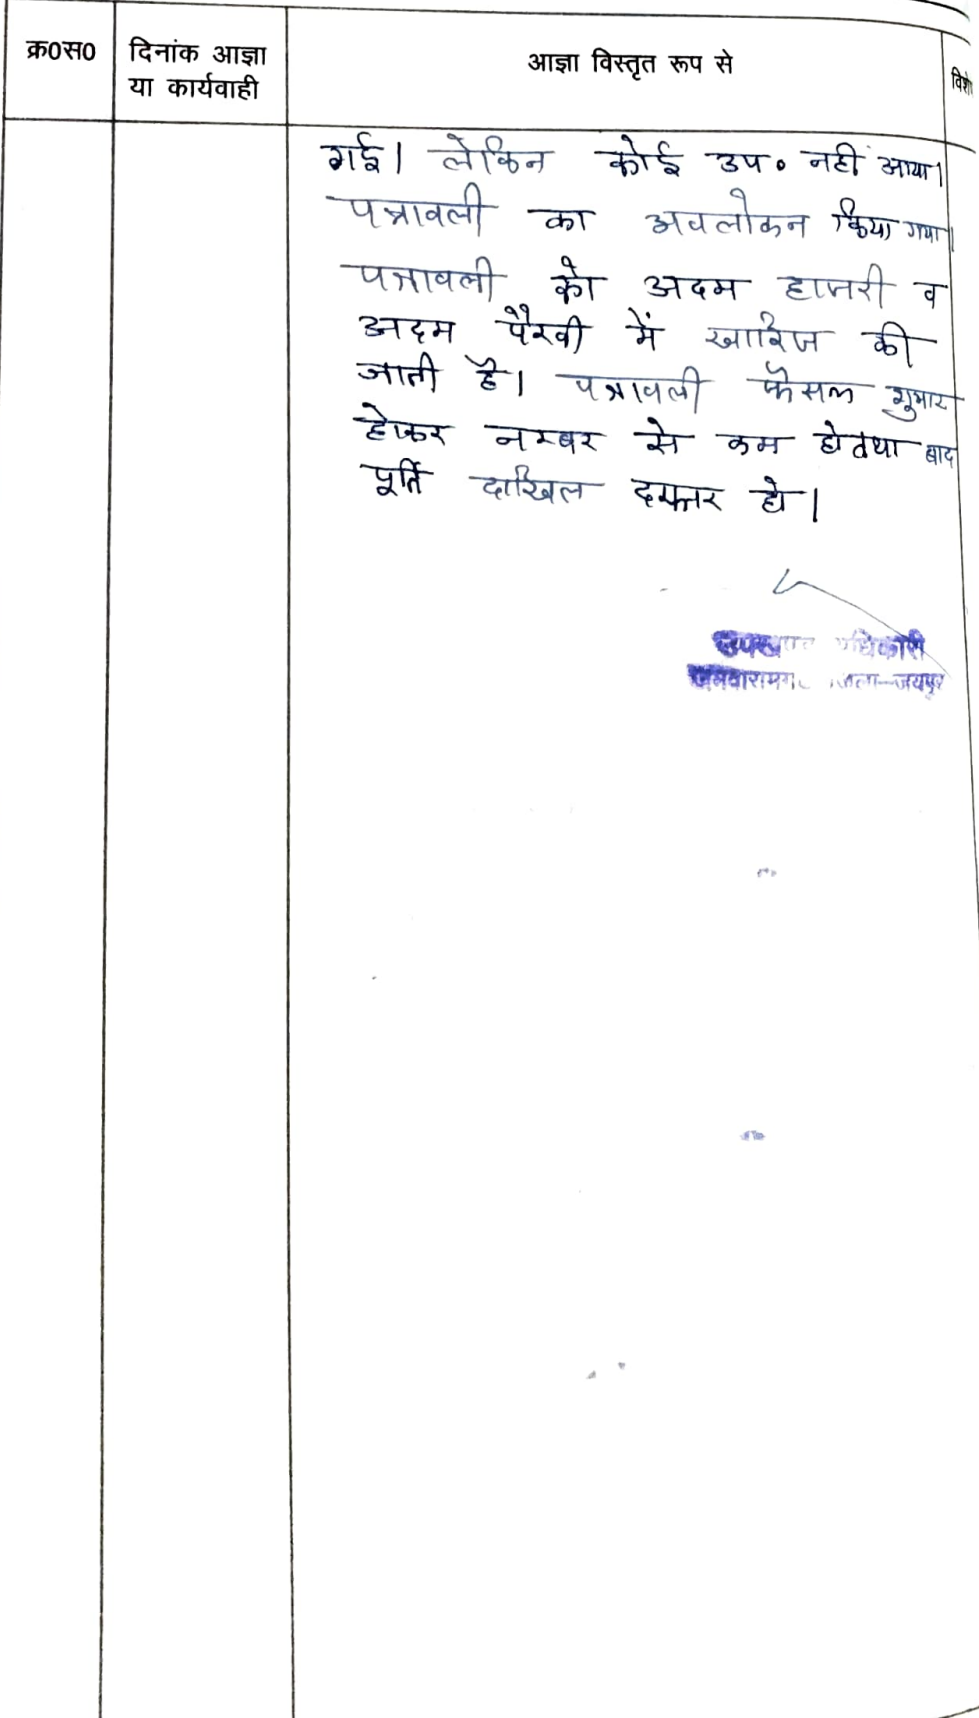 क्र0स0
दिनांक आज्ञा
या कार्यवाही
आज्ञा विस्तृत रूप से
गई। लेकिन कोई उप॰ नहीं आया।
पत्रावली का अवलोकन किया गया।
पत्रावली को अदम हाजरी व
अदम पैरवी में खारिज की
जाती है। पत्रावली फैसल शुमार
होकर नम्बर से कम हो तथा बाद
पूर्ति दाखिल दफ्तर हो।
उपखण्ड अधिकारी
जमवारामगढ़ जिला-जयपुर